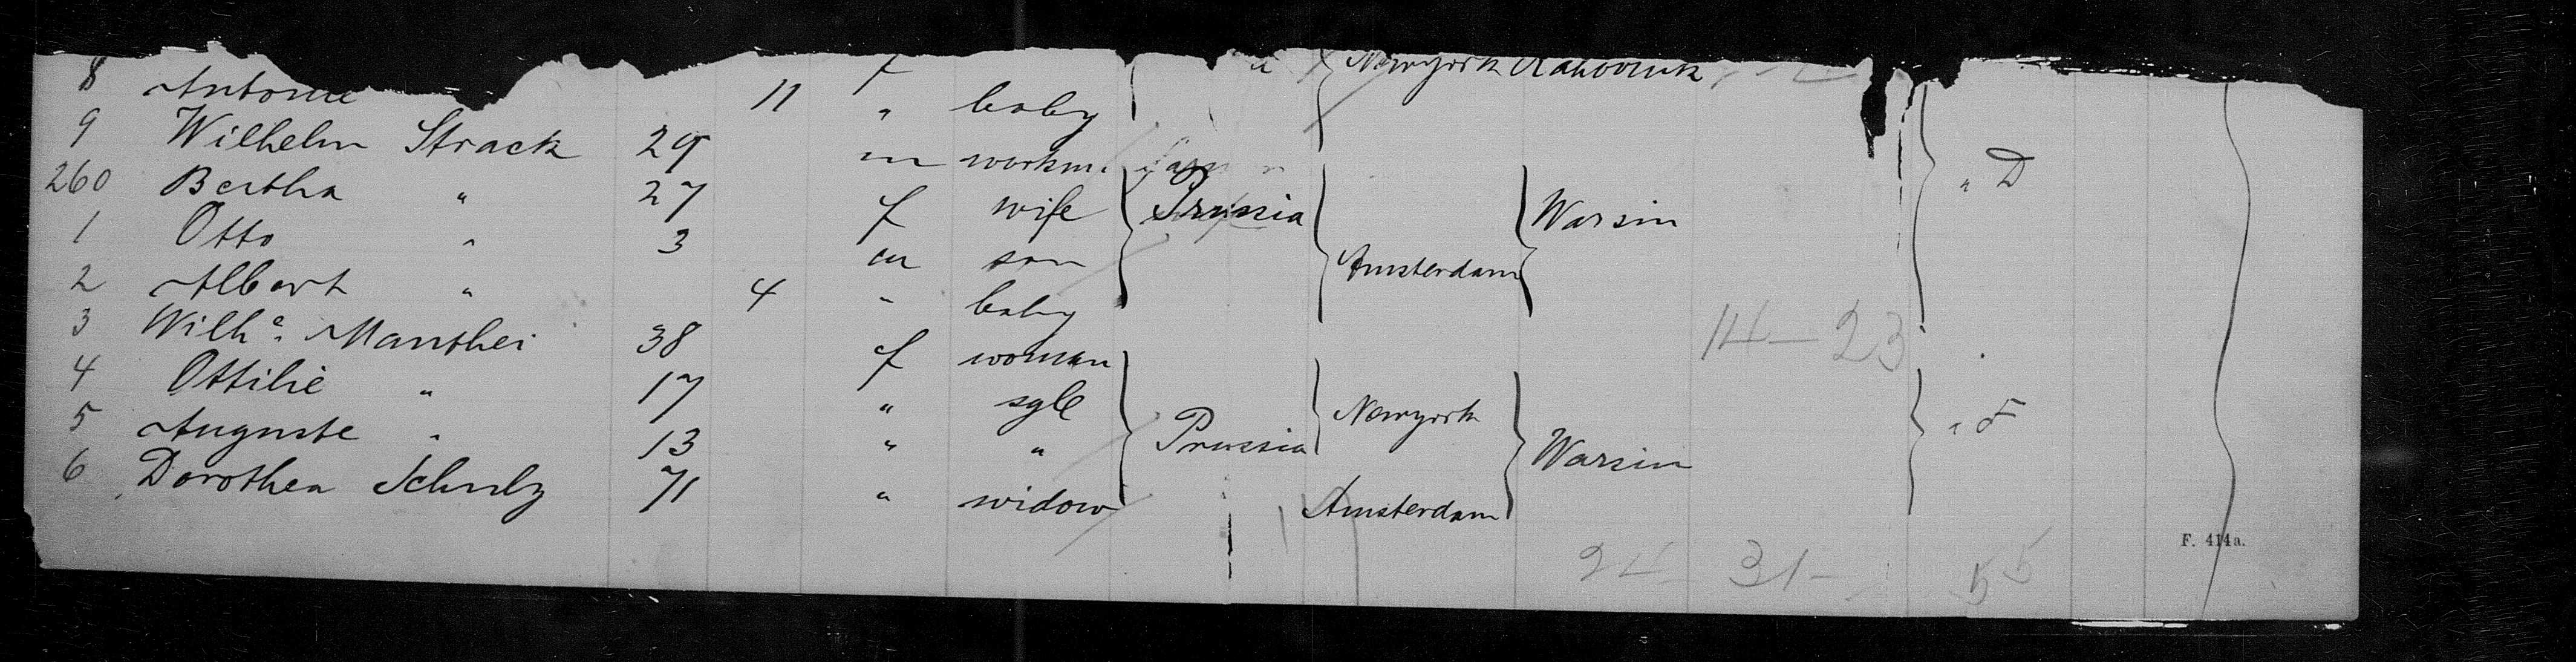 8 Antonie 11 " baby Newyork
9 Wilhelm Strack 29 m workm.
260 Bertha " 27 f wife Prussia Warsin " D
1 Otto " 3 m son Amsterdam
2 Albert " 4 " baby
3 Wilhe. Manthei 38 f woman 14-23
4 Ottilie " 17 " sgle Newyork " F
5 Auguste " 13 " " Prussia Warsin
6 Dorothea Schulz 71 " widow Amsterdam
24 - 31 - 55
F. 414a.